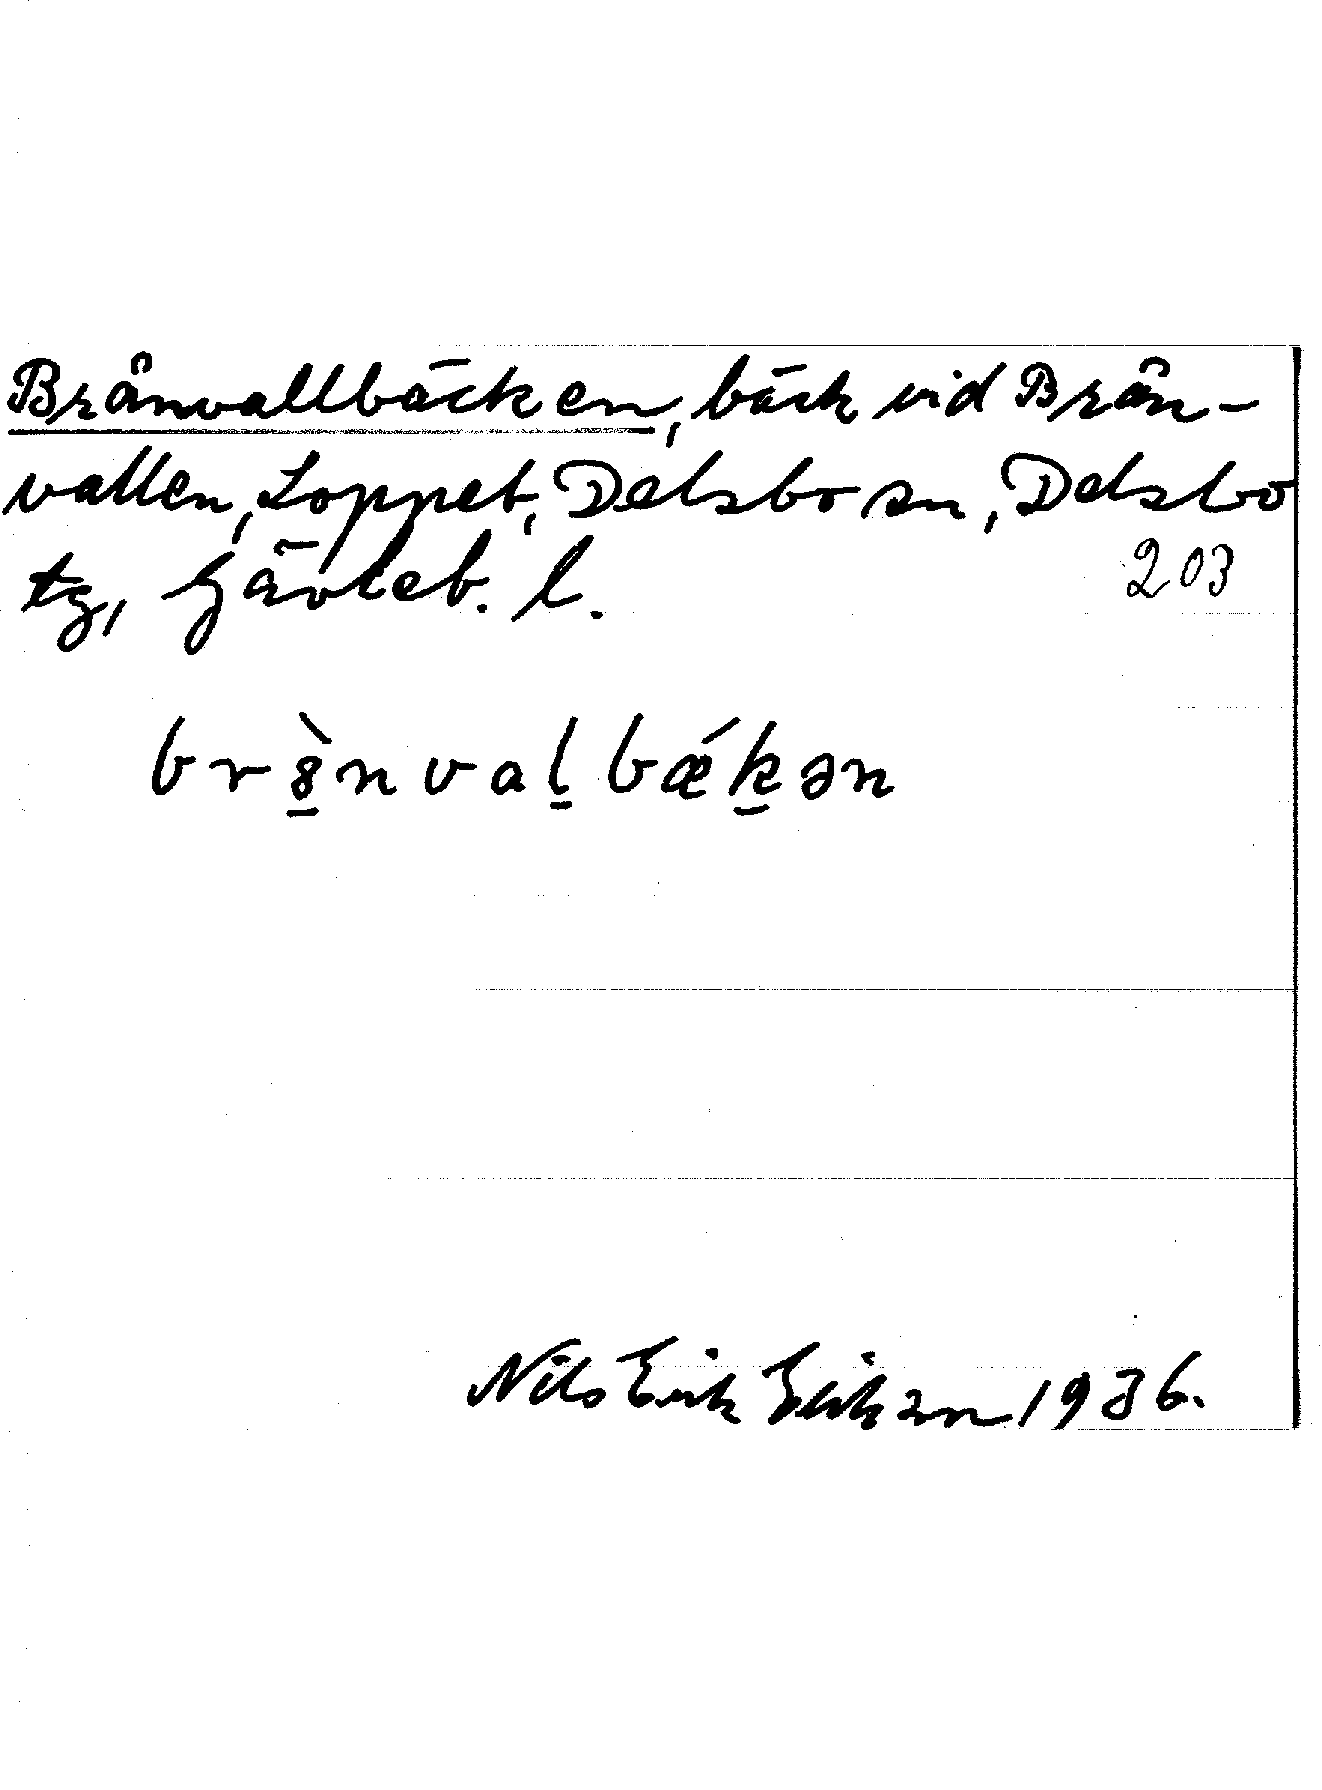 Brånvallbäcken, bäck vid Brån-
vallen, Loppet, Delsbo sn, Delsbo
tg, Gävleb. l.
203
br8̠̀nval̠bǽk̠ən
Nils Erik Erikson 1936.